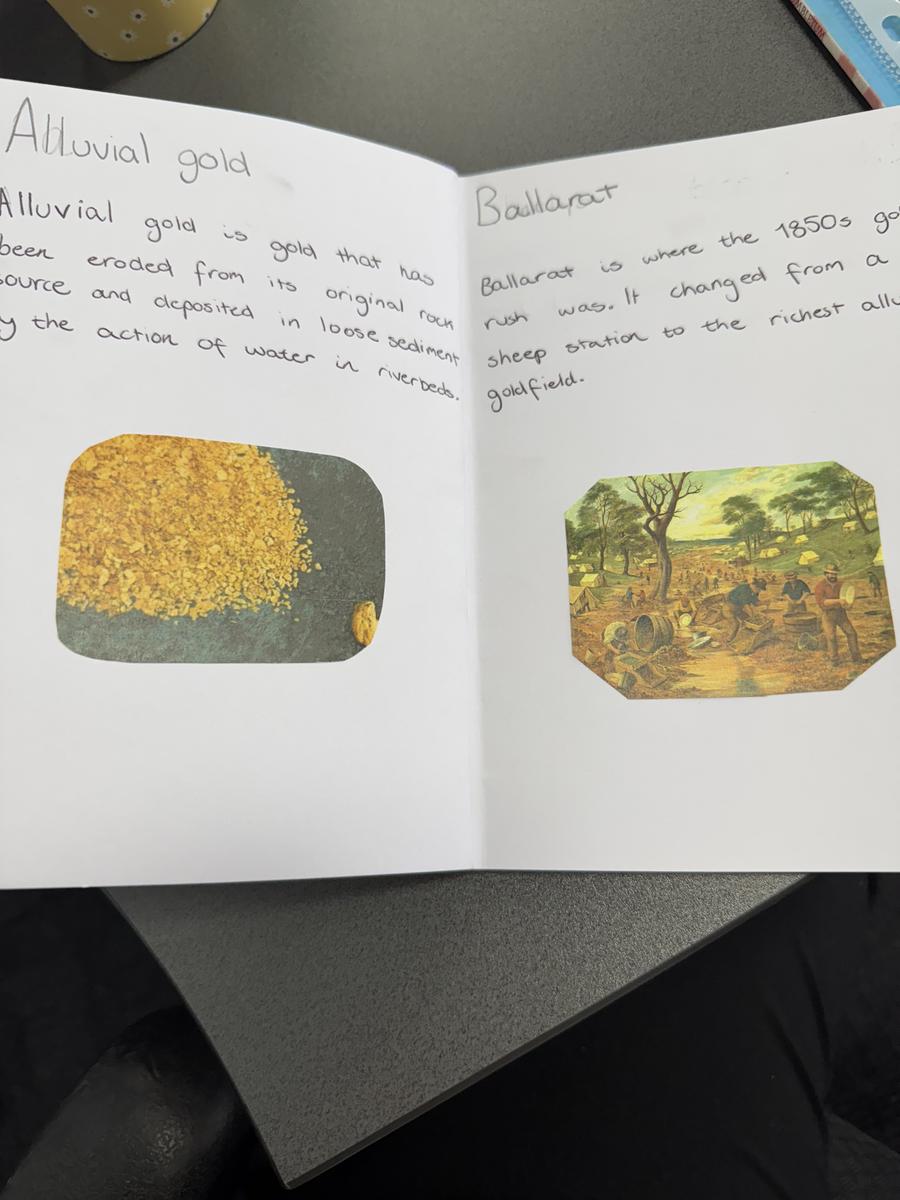 Alluvial gold
Alluvial gold is gold that has
been eroded from its original rock
source and deposited in loose sediment
y the action of water in riverbeds.
Ballarat
Ballarat is where the 1850s go
rush was. It changed from a
sheep station to the richest allu
goldfield.